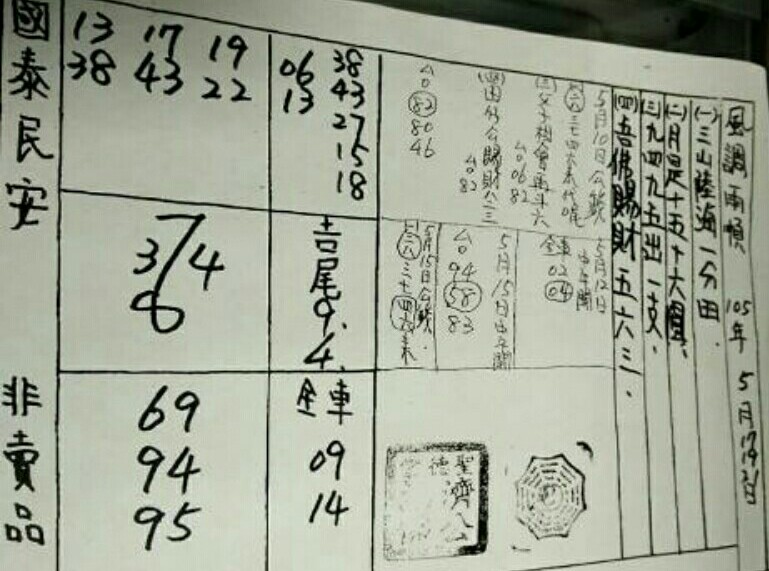 風調雨順 105年 5月17.19.21日
(一)三山陸海一分田.
(二)月是十五十六圓、
(三)九四九五出一支、
(四)吾佛賜財五六三.
5月10日公號
三七四六未代尾
(三)父子相會再斗六
06
82
(四)因分公賜財八三
82
82
80
46
5月12日
全車
02
04
5月15日
94
58
83
5月15日公號
38
43
27
15
18
06
13
吉尾
9.
4.
全車
09
14
13 17 19
38 43 22
7
3 4
8
69
94
95
聖德
濟公
國泰民安
非賣品